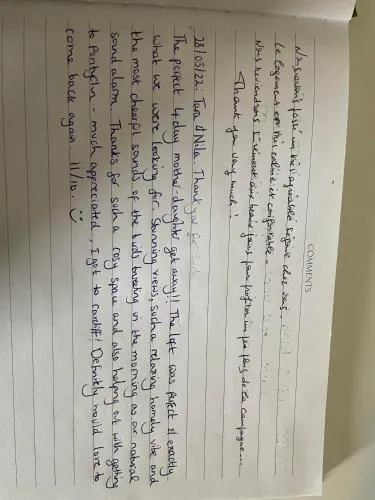 COMMENTS
Nous avons passé un très agréable séjour chez vous.
Le logement est très calme et confortable.
Nous reviendrons sûrement aux beaux jours pour profiter un peu plus de la campagne...
Thank you very much!
28/03/22. Tara & Nila. Thank you for
The perfect 4 day mother-daughter get away!! The loft was perfect & exactly
what we were looking for. Stunning views, such a relaxing homely vibe and
the most cheerful sounds of the birds tweeting in the morning as our natural
sound alarm. Thanks for such a cosy space and also helping out with getting
to Pontyclun - much appreciated, I got to cardiff! Definitely would love to
come back again. 11/10. :)